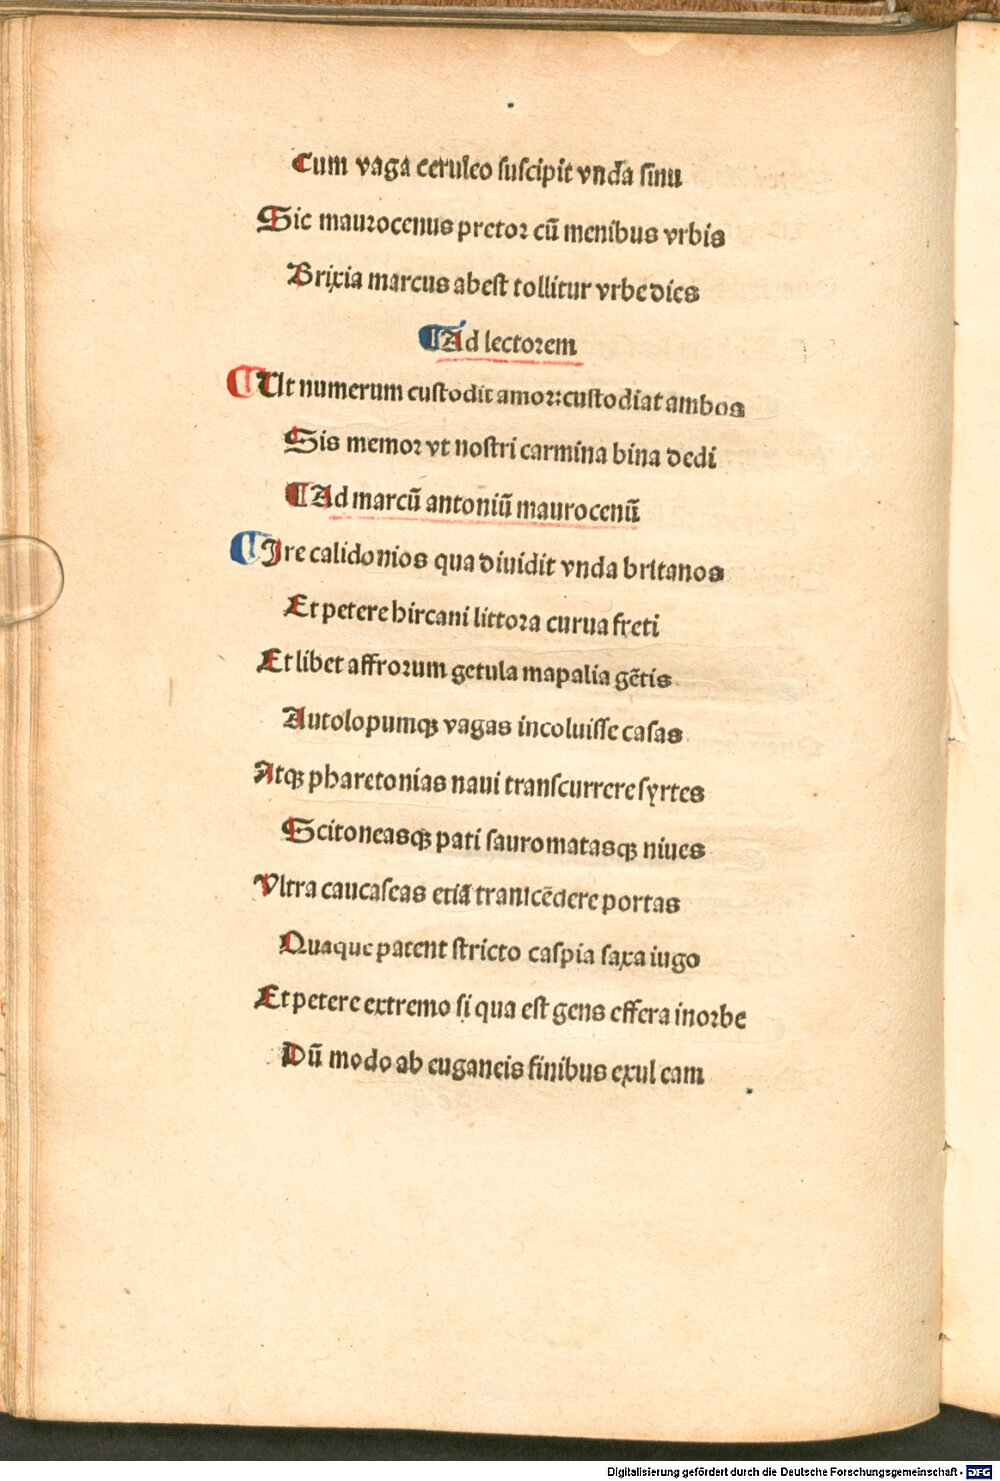 Cum vaga ceruleo suscipit vnda sinu
Sic maurocenus pretor cū menibus vrbis
Brixia marcus abest tollitur vrbe dies
Ad lectorem
Ut numerum custodit amor: custodiat ambos
Sis memor vt nostri carmina bina dedi
Ad marcū antoniū maurocenū
Ire calidonios qua diuidit vnda britanos
Et petere hircani littora curua freti
Et libet affrorum getula mapalia gētis
Autolopumqꝫ vagas incoluisse casas
Atqꝫ pharetonias naui transcurrere syrtes
Scitoneasqꝫ pati sauromatasqꝫ niues
Vltra caucaseas etiā transcēdere portas
Quaque patent stricto caspia saxa iugo
Et petere extremo si qua est gens effera in orbe
Dū modo ab euganeis finibus exul eam
Digitalisierung gefördert durch die Deutsche Forschungsgemeinschaft - DFG